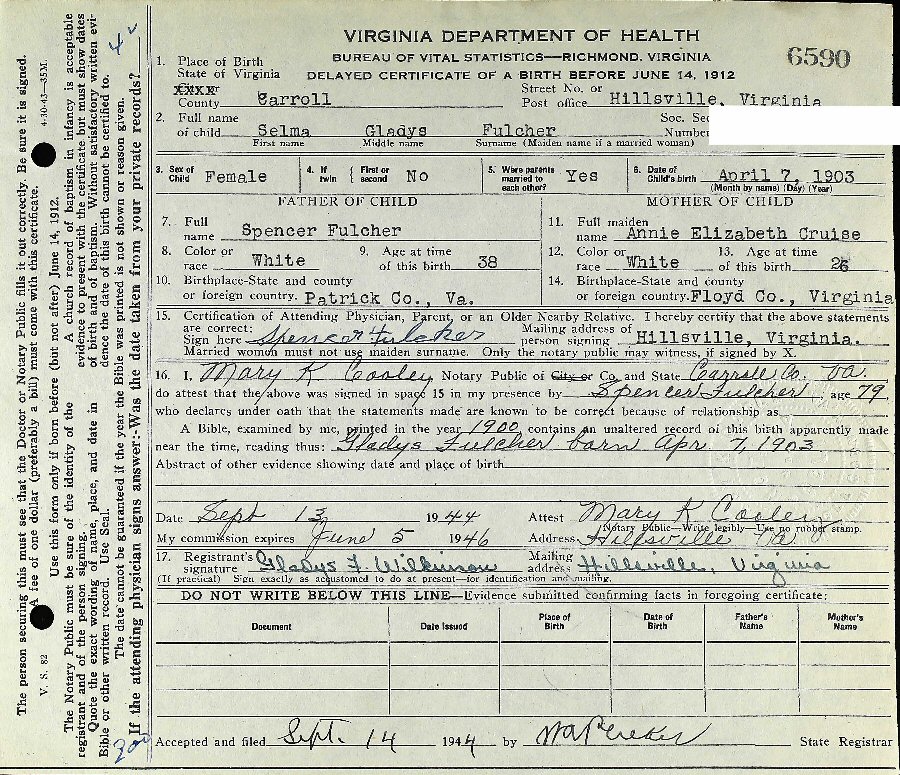 VIRGINIA DEPARTMENT OF HEALTH
BUREAU OF VITAL STATISTICS—RICHMOND, VIRGINIA
6590
DELAYED CERTIFICATE OF A BIRTH BEFORE JUNE 14, 1912
1. Place of Birth
State of Virginia
County Carroll
Street No. or
Post office Hillsville, Virginia
2. Full name
of child Selma Gladys Fulcher
First name Middle name Surname (Maiden name if a married woman)
Soc. Sec
Number
3. Sex of Child Female
4. If twin { First or second No
5. Were parents married to each other? Yes
6. Date of Child's birth April 7, 1903
(Month by name) (Day) (Year)
FATHER OF CHILD
7. Full name Spencer Fulcher
8. Color or race White
9. Age at time of this birth 38
10. Birthplace-State and county
or foreign country. Patrick Co., Va.
MOTHER OF CHILD
11. Full maiden name Annie Elizabeth Cruise
12. Color or race White
13. Age at time of this birth 26
14. Birthplace-State and county
or foreign country. Floyd Co., Virginia
15. Certification of Attending Physician, Parent, or an Older Nearby Relative. I hereby certify that the above statements
are correct:
Sign here Spencer Fulcher
Mailing address of
person signing Hillsville, Virginia.
Married women must not use maiden surname. Only the notary public may witness, if signed by X.
16. I, Mary K Cooley, Notary Public of City or Co. and State Carroll Co. Va.
do attest that the above was signed in space 15 in my presence by Spencer Fulcher, age 79,
who declares under oath that the statements made are known to be correct because of relationship as
A Bible, examined by me, printed in the year 1900, contains an unaltered record of this birth apparently made
near the time, reading thus: Gladys Fulcher born Apr. 7, 1903
Abstract of other evidence showing date and place of birth.
Date Sept 13 1944
Attest Mary K Cooley
(Notary Public—Write legibly—Use no rubber stamp.
My commission expires June 5 1946
Address Hillsville Va
17. Registrant's
signature Gladys F. Wilkinson
Mailing
address Hillsville, Virginia
(If practical) Sign exactly as accustomed to do at present—for identification and mailing.
DO NOT WRITE BELOW THIS LINE—Evidence submitted confirming facts in foregoing certificate:
Document Date Issued Place of Birth Date of Birth Father's Name Mother's Name
Accepted and filed Sept. 14 1944 by State Registrar
The person securing this must see that the Doctor or Notary Public fills it out correctly. Be sure it is signed.
A fee of one dollar (preferably a bill) must come with this certificate.
V. S. 82
4-30-43—35M.
Use this form only if born before (but not after) June 14, 1912.
The Notary Public must be sure of the identity of the
registrant and of the person signing.
Quote the exact wording of name, place, and date in
Bible or other written record. Use Seal.
A church record of baptism in infancy is acceptable
evidence to present with the certificate but must show dates
of birth and of baptism. Without satisfactory written evi-
dence the date of this birth cannot be certified to.
The date cannot be guaranteed if the year the Bible was printed is not shown or reason given.
If the attending physician signs answer:-Was the date taken from your private records?